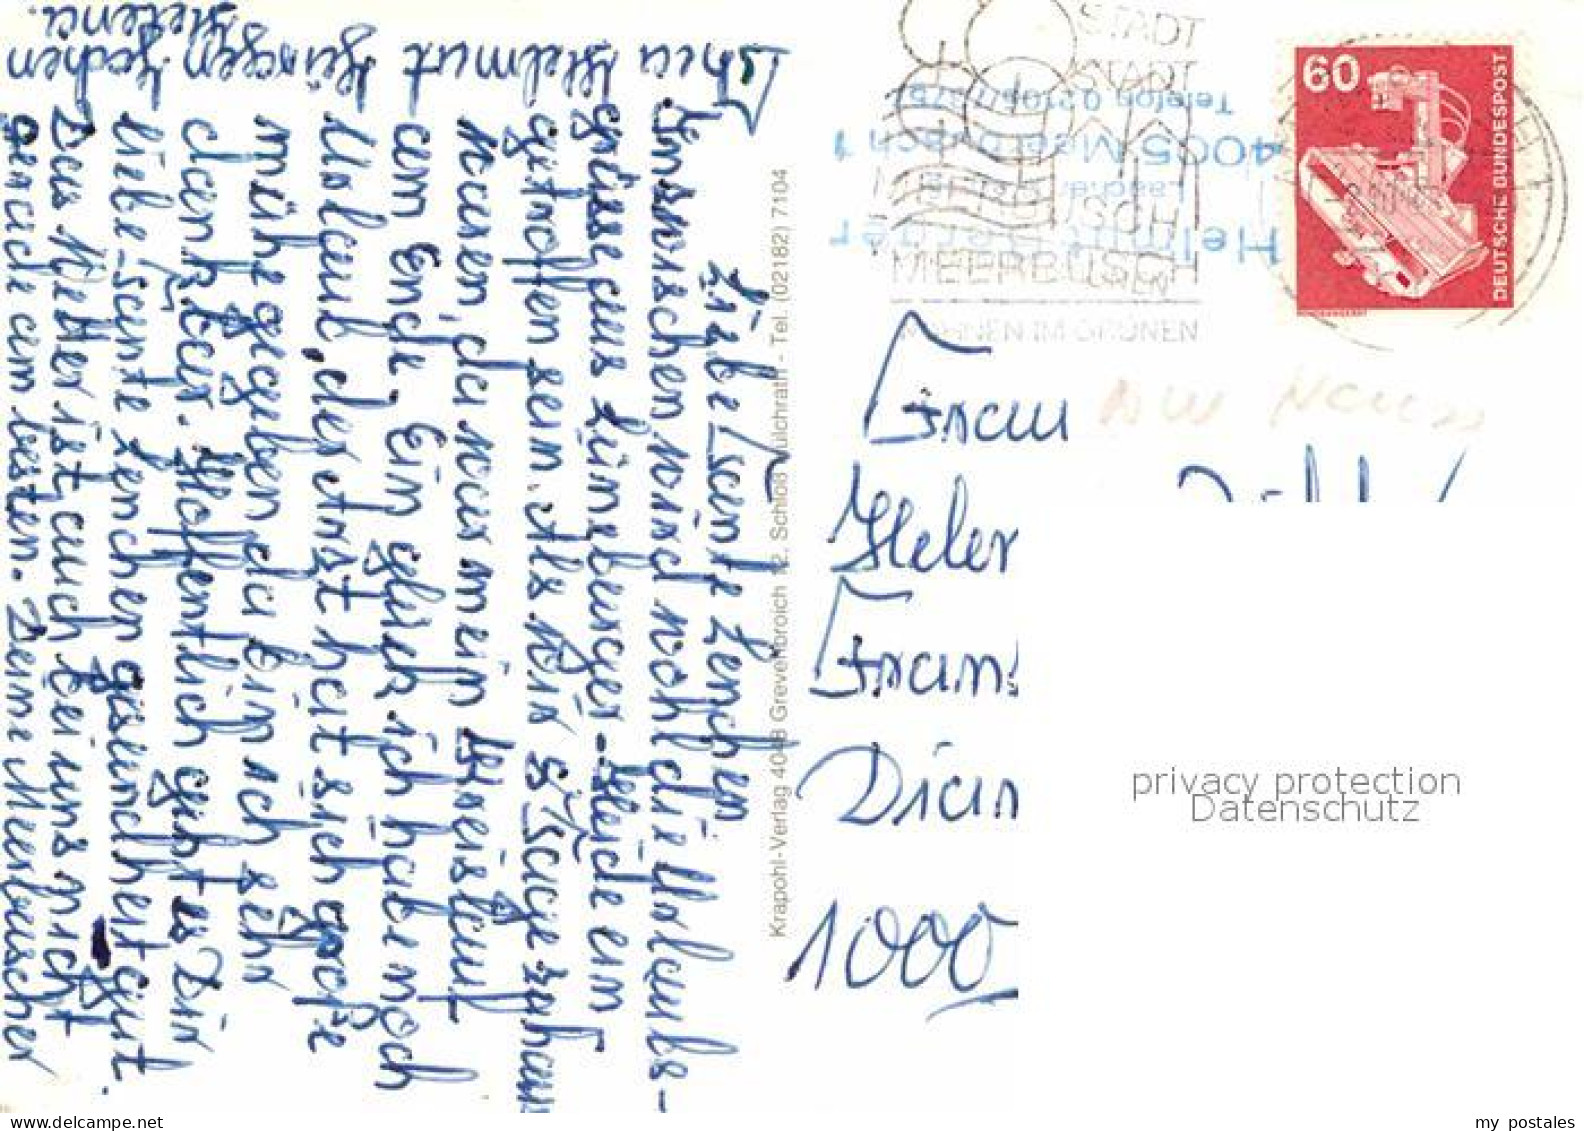 Liebe Tante Lenchen
Inzwischen wird wohl die Urlaubs-
grüsse aus Lüneburger-Heide ein
getroffen sein. Als wir 
waren, da war mein Kreislauf
am Ende. Ein glück ich habe noch
Urlaub, der Arzt hat sich große
mühe gegeben da bin ich sehr
dankbar. Hoffentlich geht es Dir
liebe Tante Lenchen gesundheit gut.
Das Wetter ist auch bei uns nicht
gerade am besten. Deine Meerbuscher
Helmut
Jürgen Jochen
Helena.
Krapohl-Verlag 4048 Grevenbroich 12. Schloß Hülchrath - Tel. (02182) 7104
STADT
STADT
MEERBUSCH
MEERBUSCH
WOHNEN IM GRÜNEN
Helmut Berger
4005 Meerbusch 1
60
DEUTSCHE BUNDESPOST
Frau
1000
privacy protection
Datenschutz
www.delcampe.net
my_postales